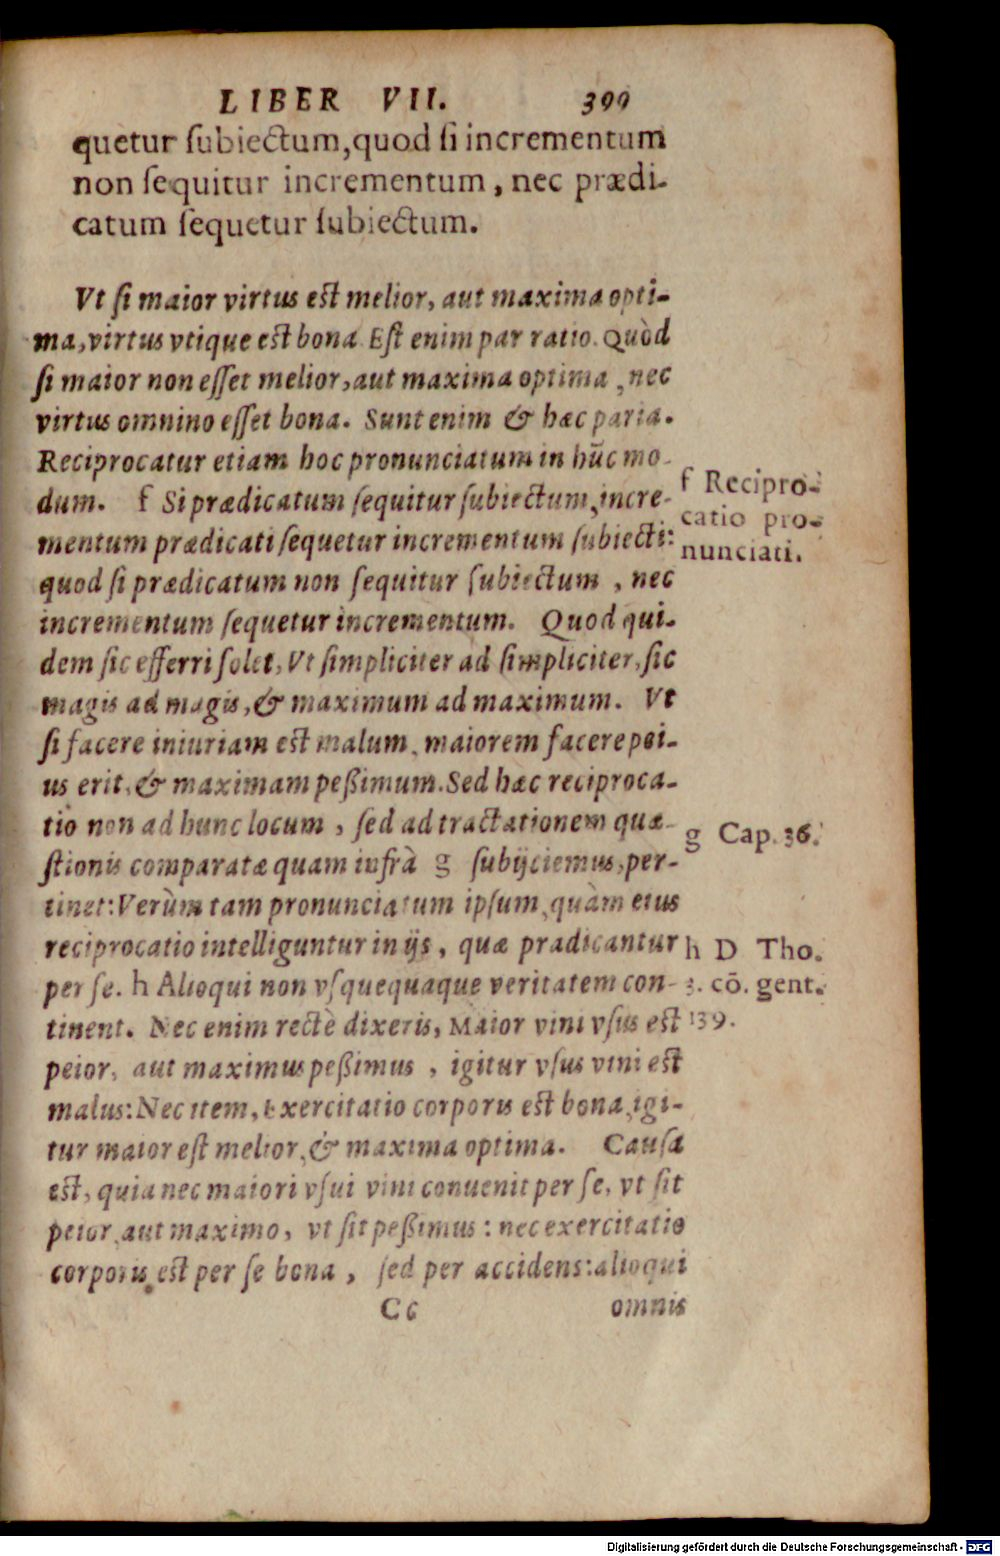 LIBER VII. 399
quetur ſubiectum, quod ſi incrementum
non ſequitur incrementum, nec prædi-
catum ſequetur ſubiectum.
Vt ſi maior virtus est melior, aut maxima opti-
ma, virtus vtique est bona. Eſt enim par ratio. Quòd
ſi maior non eſſet melior, aut maxima optima, nec
virtus omnino eſſet bona. Sunt enim & hæc paria.
Reciprocatur etiam hoc pronunciatum in hūc mo-
dum. f Si prædicatum ſequitur ſubiectum, incre-
mentum prædicati ſequetur incrementum ſubiecti:
quod ſi prædicatum non ſequitur ſubiectum, nec
incrementum ſequetur incrementum. Quod qui-
dem ſic efferri ſolet, Vt ſimpliciter ad ſimpliciter, ſic
magis ad magis, & maximum ad maximum. Vt
ſi facere iniuriam est malum, maiorem facere pei-
us erit, & maximam peßimum. Sed hæc reciproca-
tio non ad hunc locum, ſed ad tractationem quæ-
ſtionis comparatæ quam infrà g ſubijciemus, per-
tinet: Verùm tam pronunciatum ipſum, quàm eius
reciprocatio intelliguntur in ijs, quæ prædicantur
per ſe. h Alioqui non vſquequaque veritatem con-
tinent. Nec enim rectè dixeris, Maior vini vſus est
peior, aut maximus peßimus, igitur vſus vini est
malus: Nec item, Exercitatio corporis est bona, igi-
tur maior eſt melior, & maxima optima. Cauſa
est, quia nec maiori vſui vini conuenit per ſe, vt ſit
peior, aut maximo, vt ſit peßimus: nec exercitatio
corporis est per ſe bona, ſed per accidens: alioqui
Cc omnis
f Recipro-
catio pro-
nunciati.
g Cap. 36.
h D Tho.
3. cō. gent.
139.
Digitalisierung gefördert durch die Deutsche Forschungsgemeinschaft - DFG